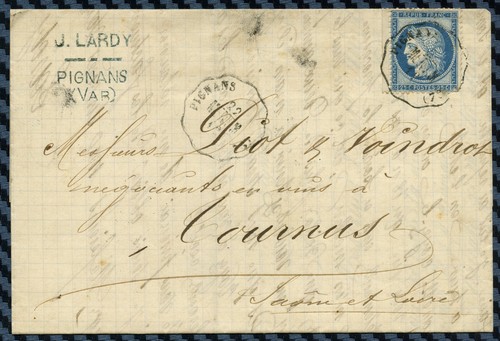 J. LARDY
PIGNANS
(VAR)
REPUB. FRANC.
25 C. POSTES 25 C.
PIGNANS
Messieurs Piot & Voindrot
négociants en vins à
Tournus
Saône et Loire